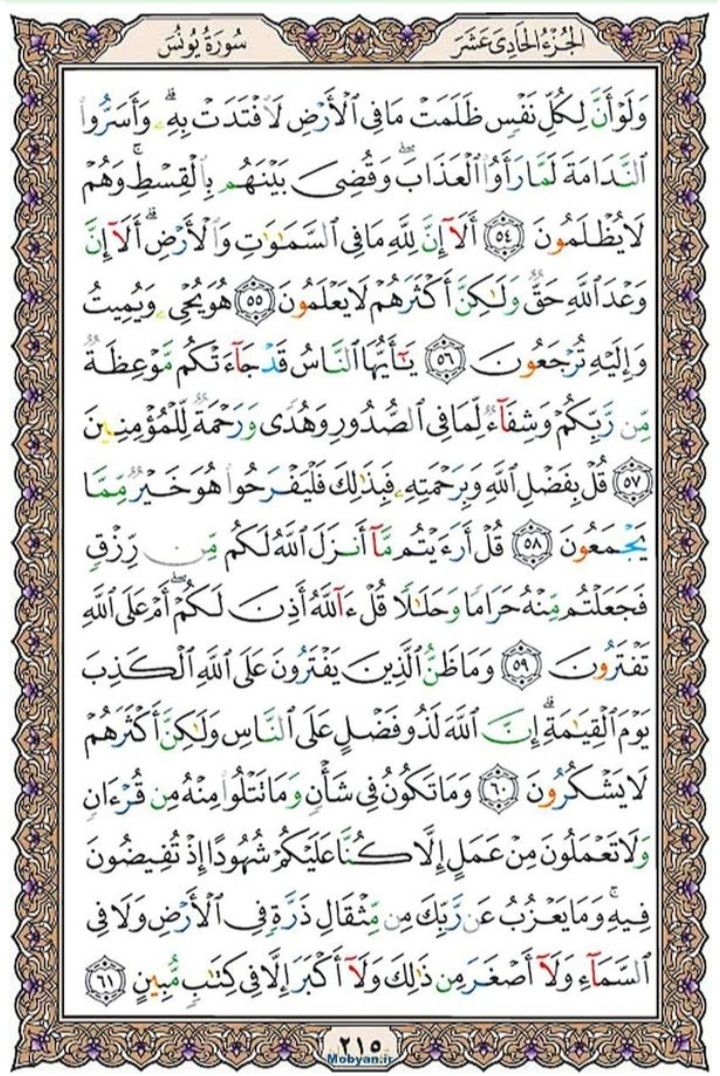 الجُزْءُ الحَادِي عَشَرَ
سُورَةُ يُونُسَ
وَلَوْ أَنَّ لِكُلِّ نَفْسٍ ظَلَمَتْ مَا فِي الْأَرْضِ لَافْتَدَتْ بِهِۦۗ وَأَسَرُّوا
النَّدَامَةَ لَمَّا رَأَوُا الْعَذَابَۖ وَقُضِيَ بَيْنَهُم بِالْقِسْطِۚ وَهُمْ
لَا يُظْلَمُونَ ٥٤ أَلَآ إِنَّ لِلَّهِ مَا فِي السَّمَٰوَٰتِ وَالْأَرْضِۗ أَلَآ إِنَّ
وَعْدَ اللَّهِ حَقٌّ وَلَٰكِنَّ أَكْثَرَهُمْ لَا يَعْلَمُونَ ٥٥ هُوَ يُحْيِۦ وَيُمِيتُ
وَإِلَيْهِ تُرْجَعُونَ ٥٦ يَٰٓأَيُّهَا النَّاسُ قَدْ جَآءَتْكُم مَّوْعِظَةٌ
مِّن رَّبِّكُمْ وَشِفَآءٌ لِّمَا فِي الصُّدُورِ وَهُدًى وَرَحْمَةٌ لِّلْمُؤْمِنِينَ
٥٧ قُلْ بِفَضْلِ اللَّهِ وَبِرَحْمَتِهِۦ فَبِذَٰلِكَ فَلْيَفْرَحُوا هُوَ خَيْرٌ مِّمَّا
يَجْمَعُونَ ٥٨ قُلْ أَرَءَيْتُم مَّآ أَنزَلَ اللَّهُ لَكُم مِّن رِّزْقٍ
فَجَعَلْتُم مِّنْهُ حَرَامًا وَحَلَٰلًا قُلْ ءَآللَّهُ أَذِنَ لَكُمْۖ أَمْ عَلَى اللَّهِ
تَفْتَرُونَ ٥٩ وَمَا ظَنُّ الَّذِينَ يَفْتَرُونَ عَلَى اللَّهِ الْكَذِبَ
يَوْمَ الْقِيَٰمَةِۗ إِنَّ اللَّهَ لَذُو فَضْلٍ عَلَى النَّاسِ وَلَٰكِنَّ أَكْثَرَهُمْ
لَا يَشْكُرُونَ ٦٠ وَمَا تَكُونُ فِي شَأْنٍ وَمَا تَتْلُوا مِنْهُ مِن قُرْءَانٍ
وَلَا تَعْمَلُونَ مِنْ عَمَلٍ إِلَّا كُنَّا عَلَيْكُمْ شُهُودًا إِذْ تُفِيضُونَ
فِيهِۚ وَمَا يَعْزُبُ عَن رَّبِّكَ مِن مِّثْقَالِ ذَرَّةٍ فِي الْأَرْضِ وَلَا فِي
السَّمَآءِ وَلَآ أَصْغَرَ مِن ذَٰلِكَ وَلَآ أَكْبَرَ إِلَّا فِي كِتَٰبٍ مُّبِينٍ ٦١
٢١٥
Mobyan.ir